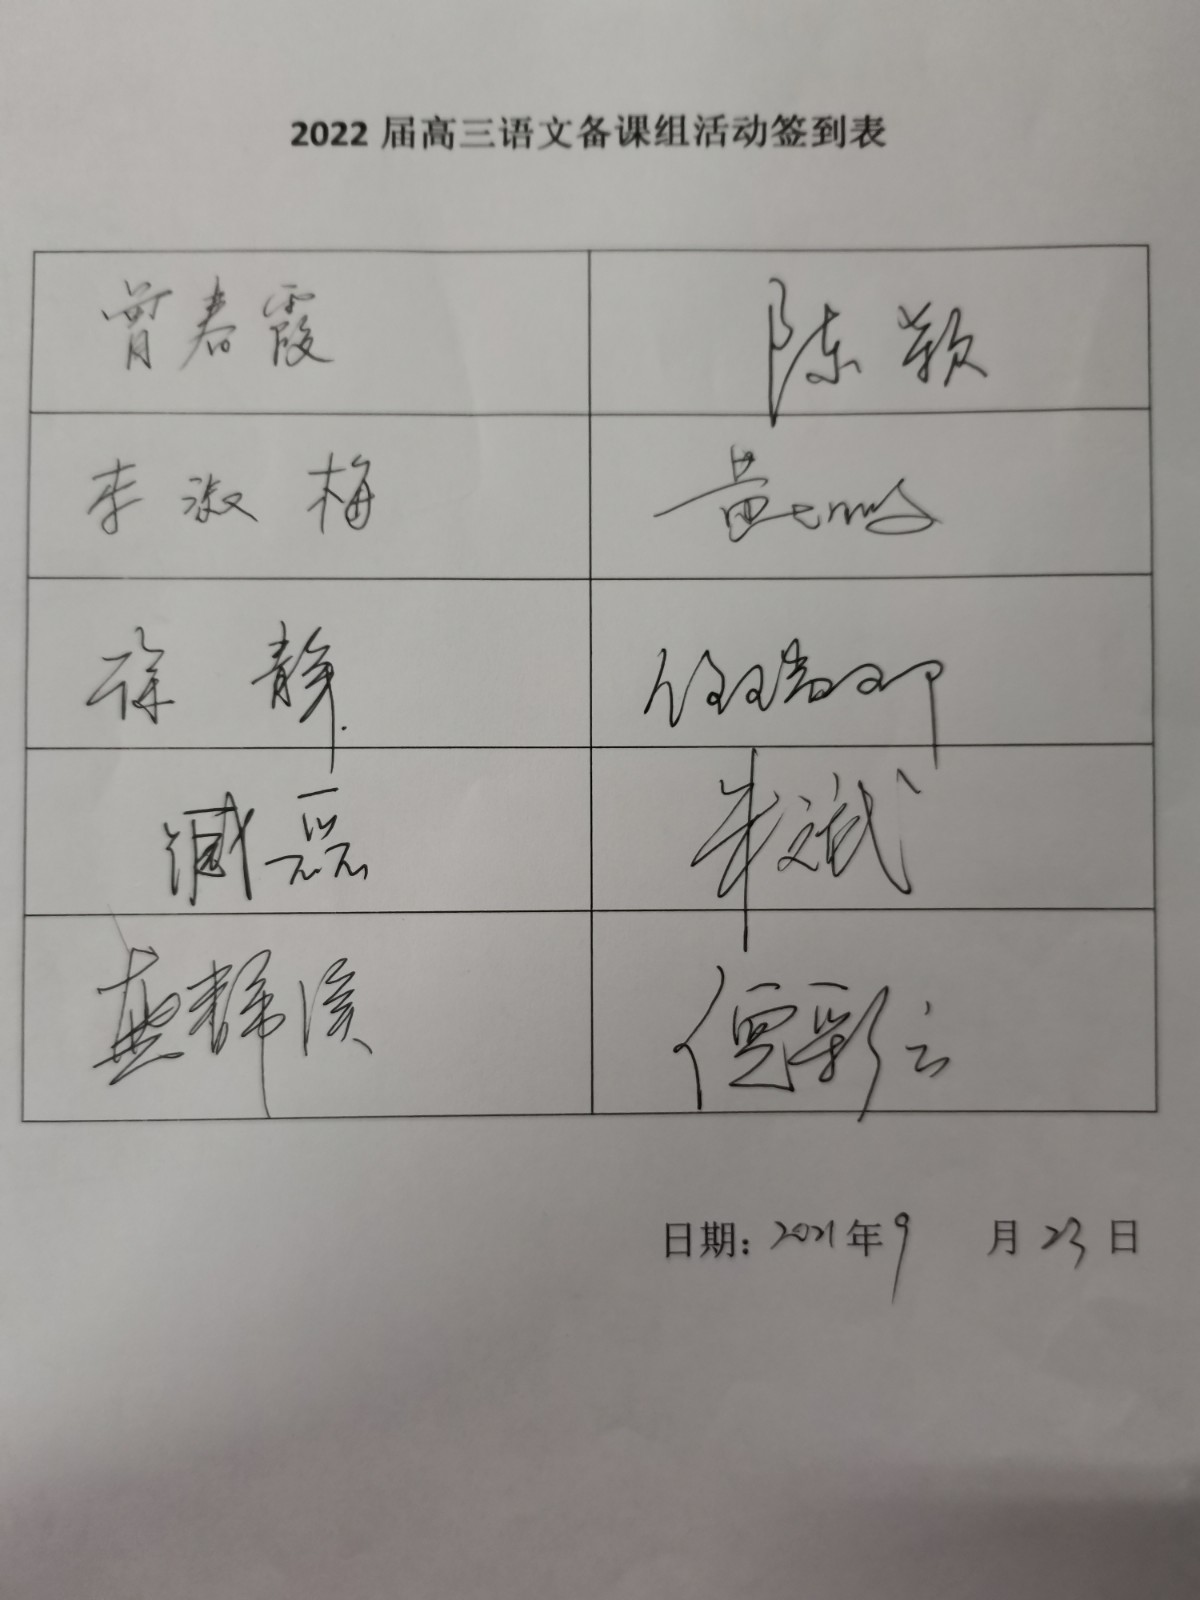 2022届高三语文备课组活动签到表
曾春霞 陈颖
李淑梅 黄
徐静
臧磊 朱斌
燕 贾彩云
日期：2021年9月23日